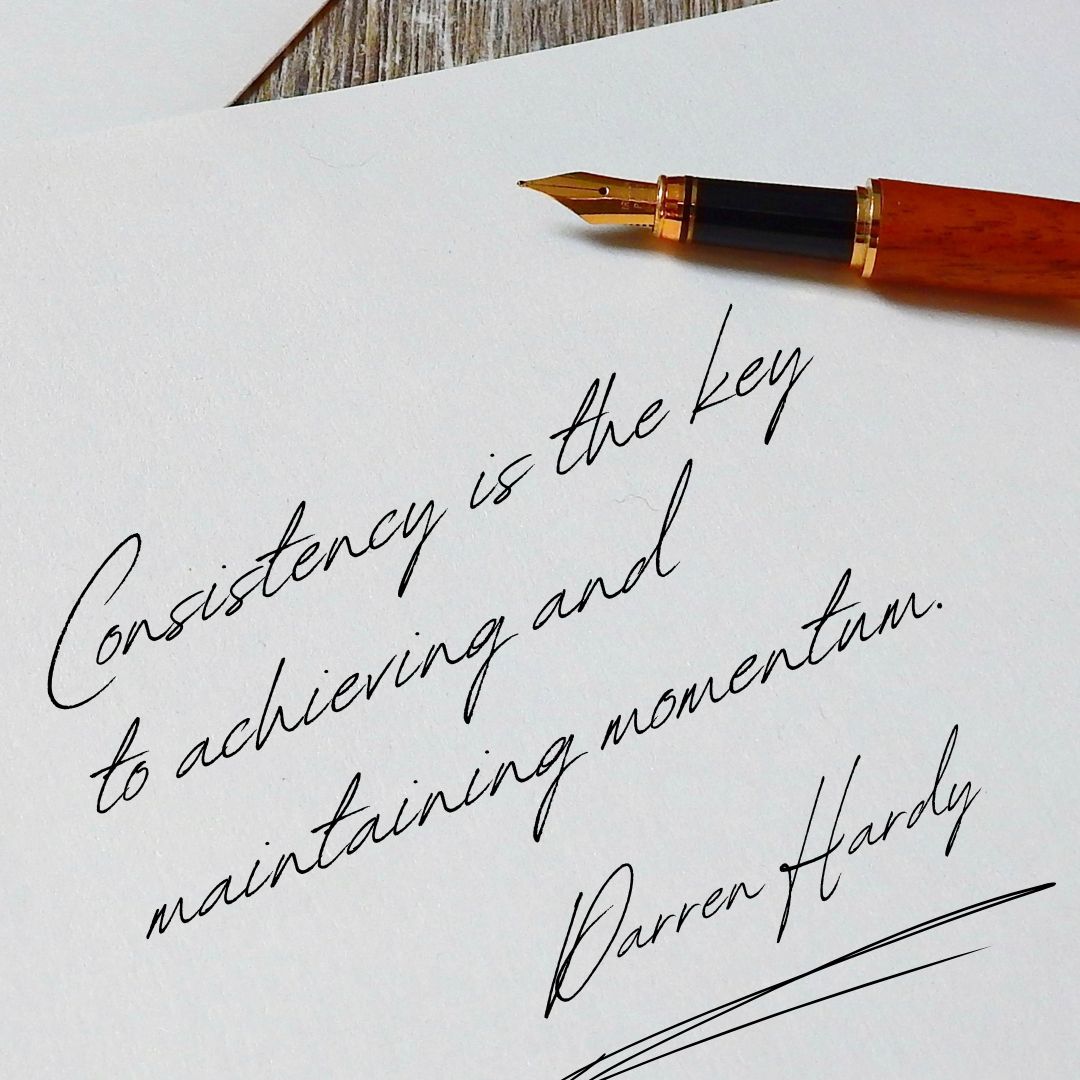 Consistency is the key
to achieving and
maintaining momentum.
Darren Hardy